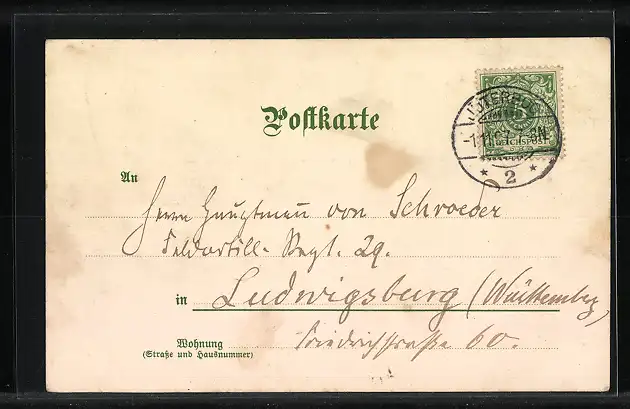 Postkarte
JÜTERBOG
-1.11.97. 7-8N.
5
REICHSPOST
* 2 *
An
Herrn Hauptmann von Schroeder
Feldartill. Regt. 29.
in Ludwigsburg (Württemberg)
Wohnung
(Straße und Hausnummer)
Friedrichstraße 60.